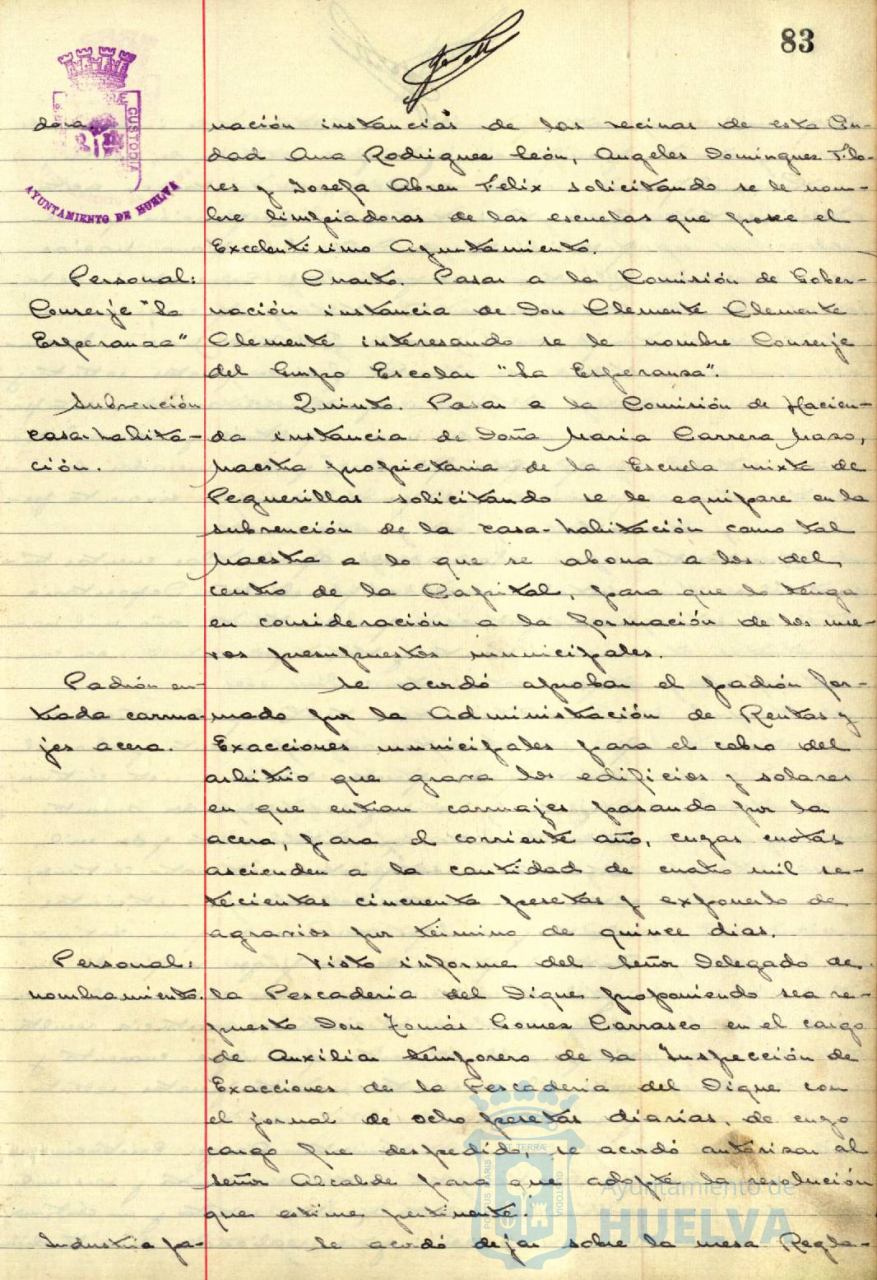 83
CUSTODIA
AYUNTAMIENTO DE HUELVA
doras
nación instancias de las vecinas de esta Ciu-
dad Ana Rodriguez León, Angeles Dominguez Flo-
res y Josefa Abreu Felix solicitando se le nom-
bre limpiadoras de las escuelas que posee el
Excelentisimo Ayuntamiento.
Personal:
Conserje "La
Esperanza"
Cuarto. Pasar a la Comisión de Gober-
nación instancia de Don Clemente Clemente
Clemente interesando se le nombre Conserje
del Grupo Escolar "La Esperanza".
Subvención
casa-habita-
ción.
Quinto. Pasar a la Comisión de Hacien-
da instancia de Doña Maria Carrera Mazo,
Maestra propietaria de la Escuela mixta de
Peguerillas solicitando se le equipare en la
subvención de la casa-habitación como tal
Maestra a lo que se abona a los del
centro de la Capital, para que lo tenga
en consideración a la formación de los nue-
vos presupuestos municipales.
Padrón en-
trada carrua-
jes acera.
Se acordó aprobar el padrón for-
mado por la Administración de Rentas y
Exacciones municipales para el cobro del
arbitrio que grava los edificios y solares
en que entran carruajes pasando por la
acera, para el corriente año, cuyas cuotas
ascienden a la cantidad de cuatro mil se-
tecientas cincuenta pesetas y exponerlo de
agravios por término de quince dias.
Personal:
nombramiento.
Visto informe del Señor Delegado de
la Pescaderia del Dique proponiendo sea re-
puesto Don Tomás Gomez Carrasco en el cargo
de Auxiliar temporero de la Inspección de
Exacciones de la Pescaderia del Dique con
el jornal de ocho pesetas diarias, de cuyo
cargo fue despedido, se acordó autorizar al
Señor Alcalde para que adopte la resolución
que estime pertinente.
Industria pa-
Se acordó dejar sobre la mesa Regla-
Ayuntamiento de
HUELVA